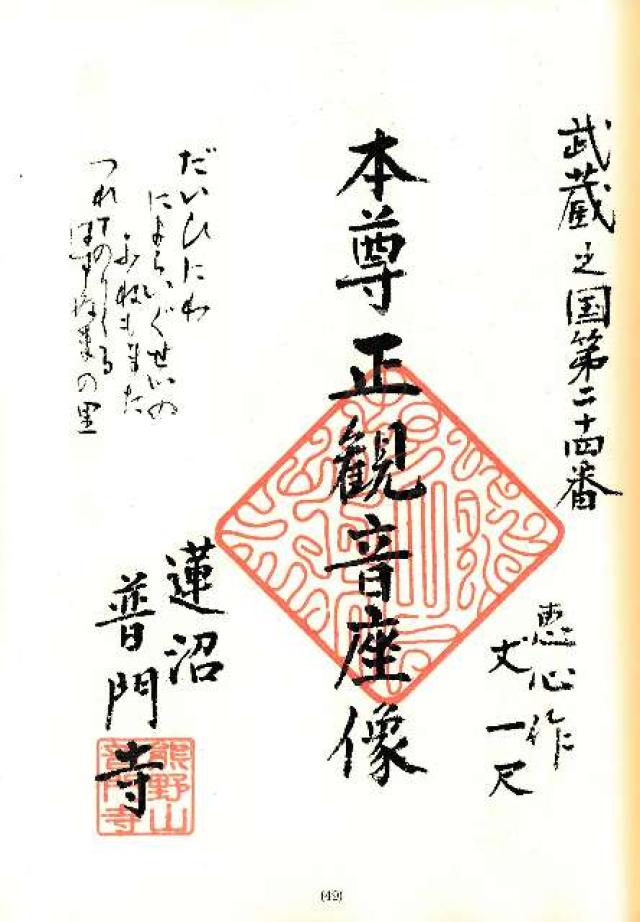 武蔵之国第二十四番
恵心作
丈一尺
本尊正観音座像
だいひにわ
によらいぐせいの
ふねもまた
つれてのりくる
はすぬまの里
蓮沼
普門寺
熊野山
普門寺
(49)